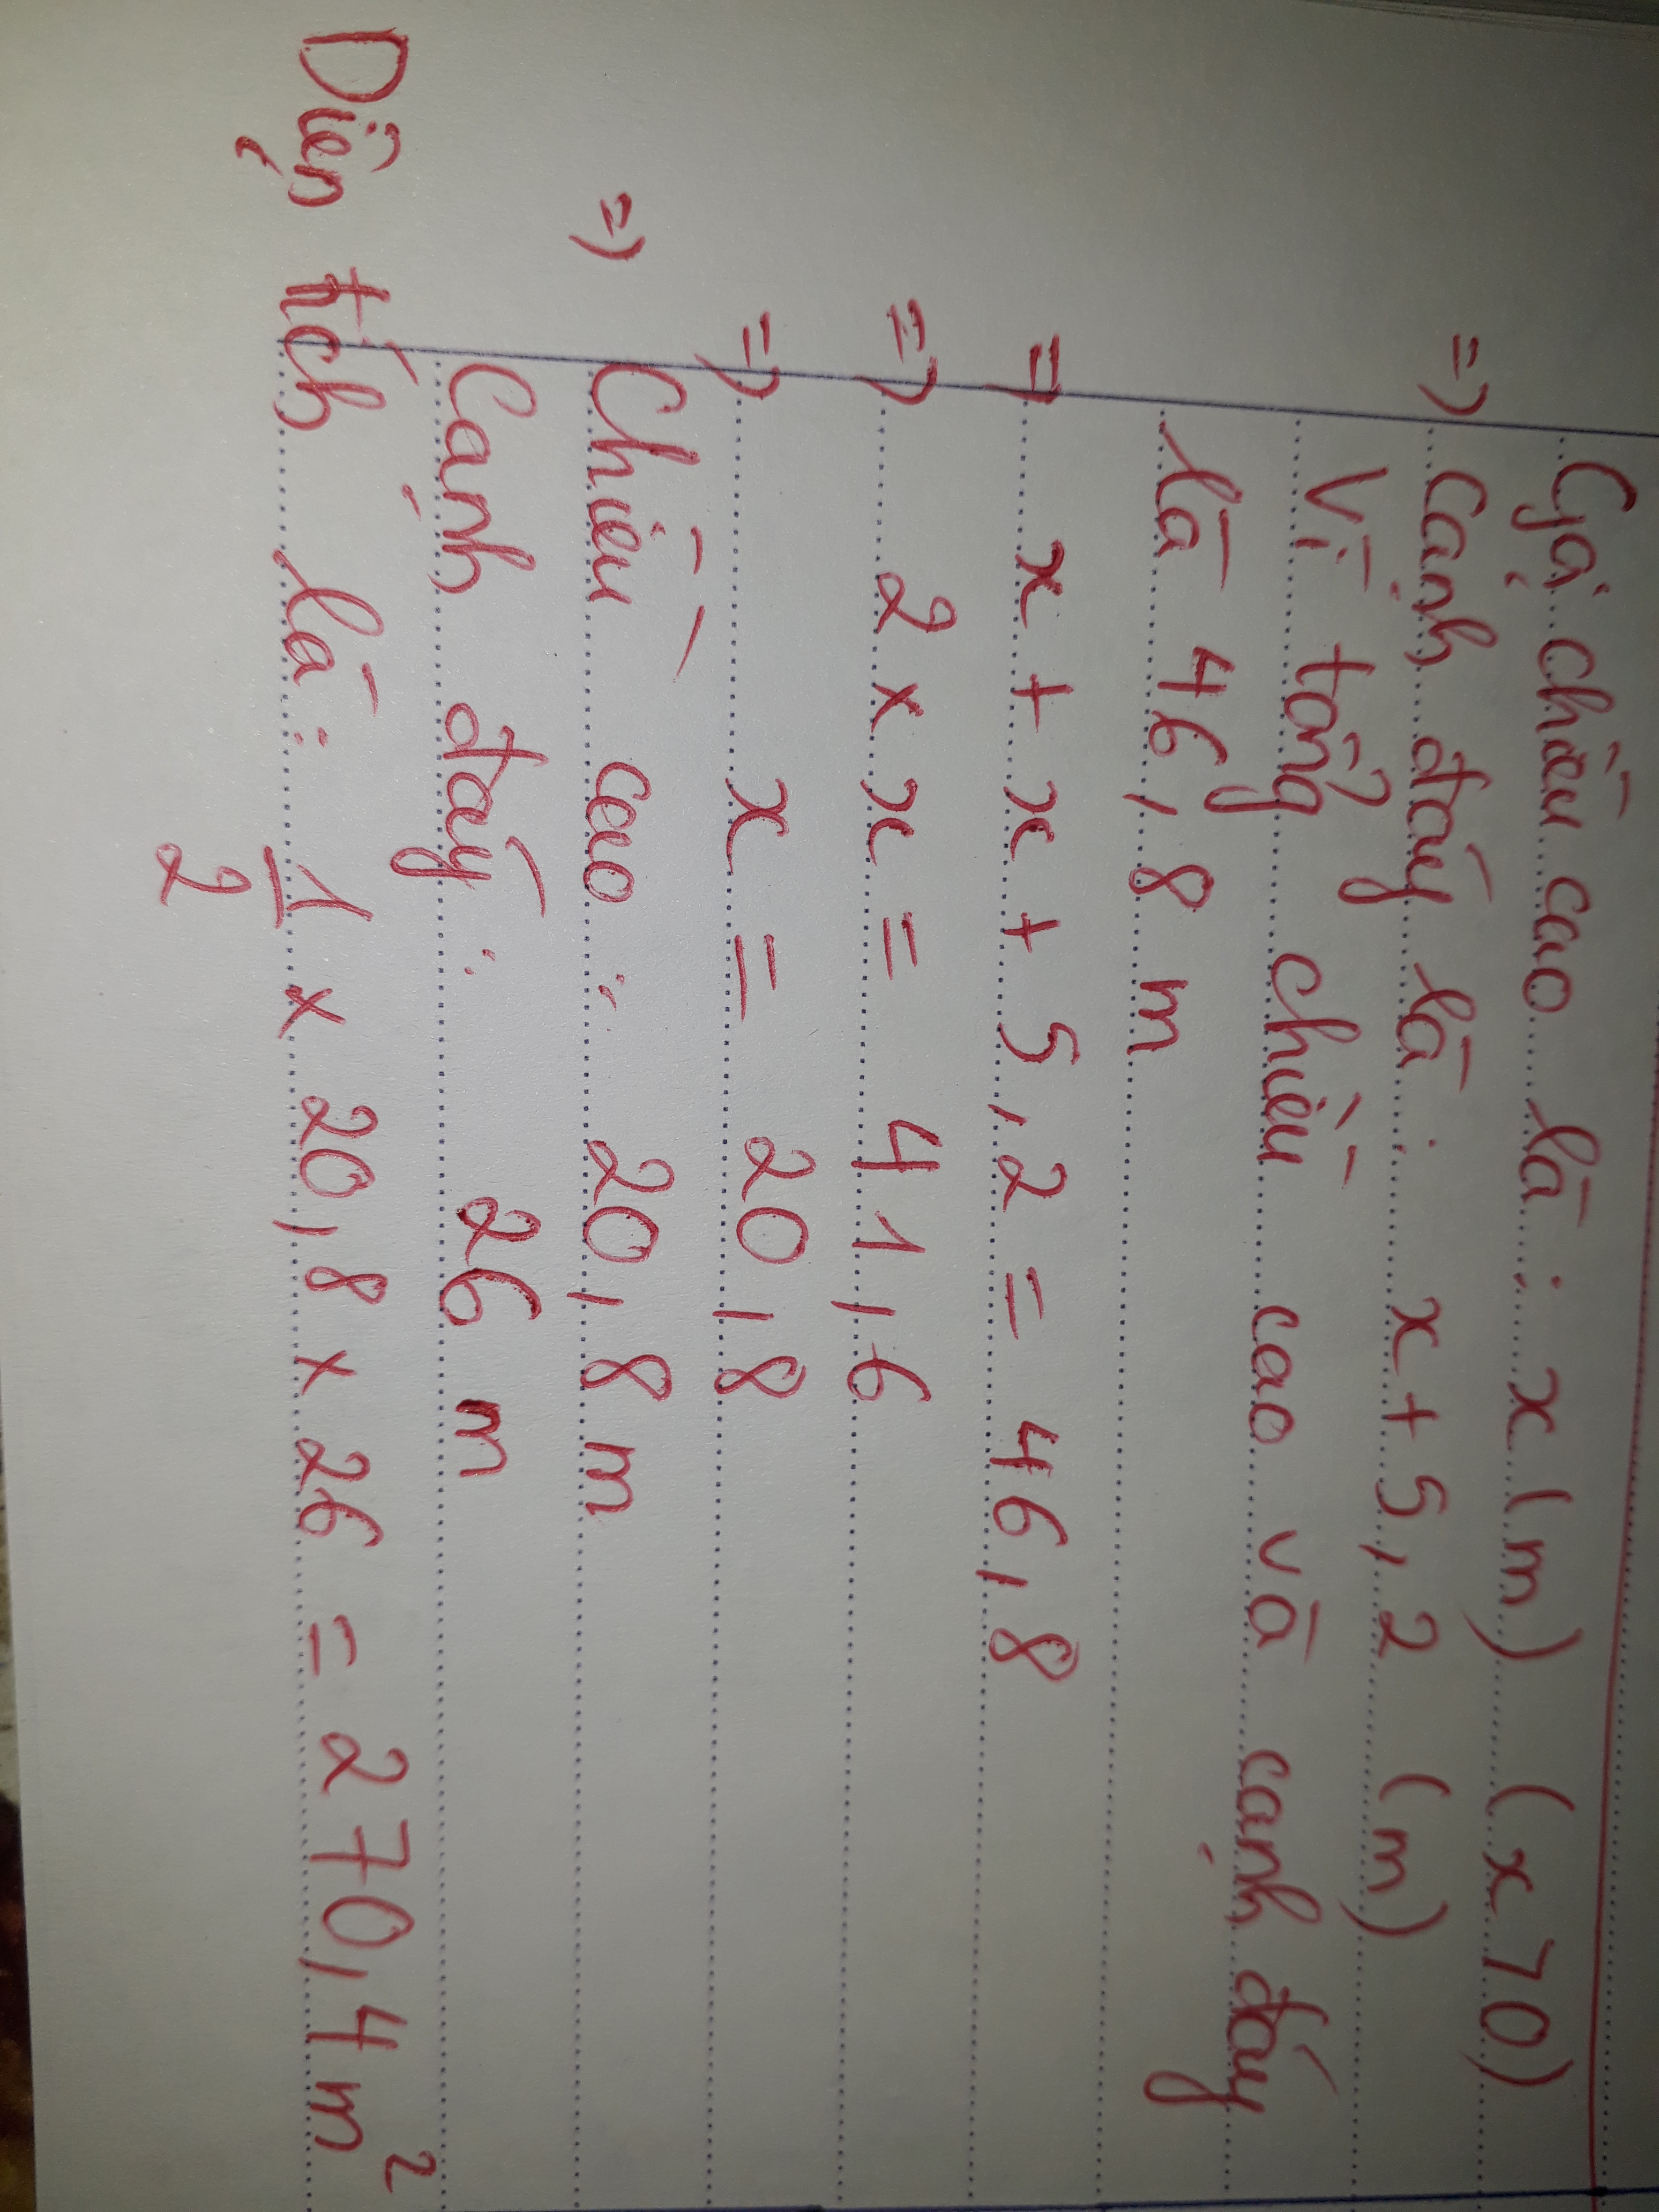 Gọi chiều cao là: x (m) (x > 0)
=> Cạnh đáy là: x + 5,2 (m)
Vì tổng chiều cao và cạnh đáy
là 46,8 m
=> x + x + 5,2 = 46,8
=> 2 x x = 41,6
=> x = 20,8
=> Chiều cao: 20,8 m
Cạnh đáy: 26 m
Diện tích là: 1/2 x 20,8 x 26 = 270,4 m²